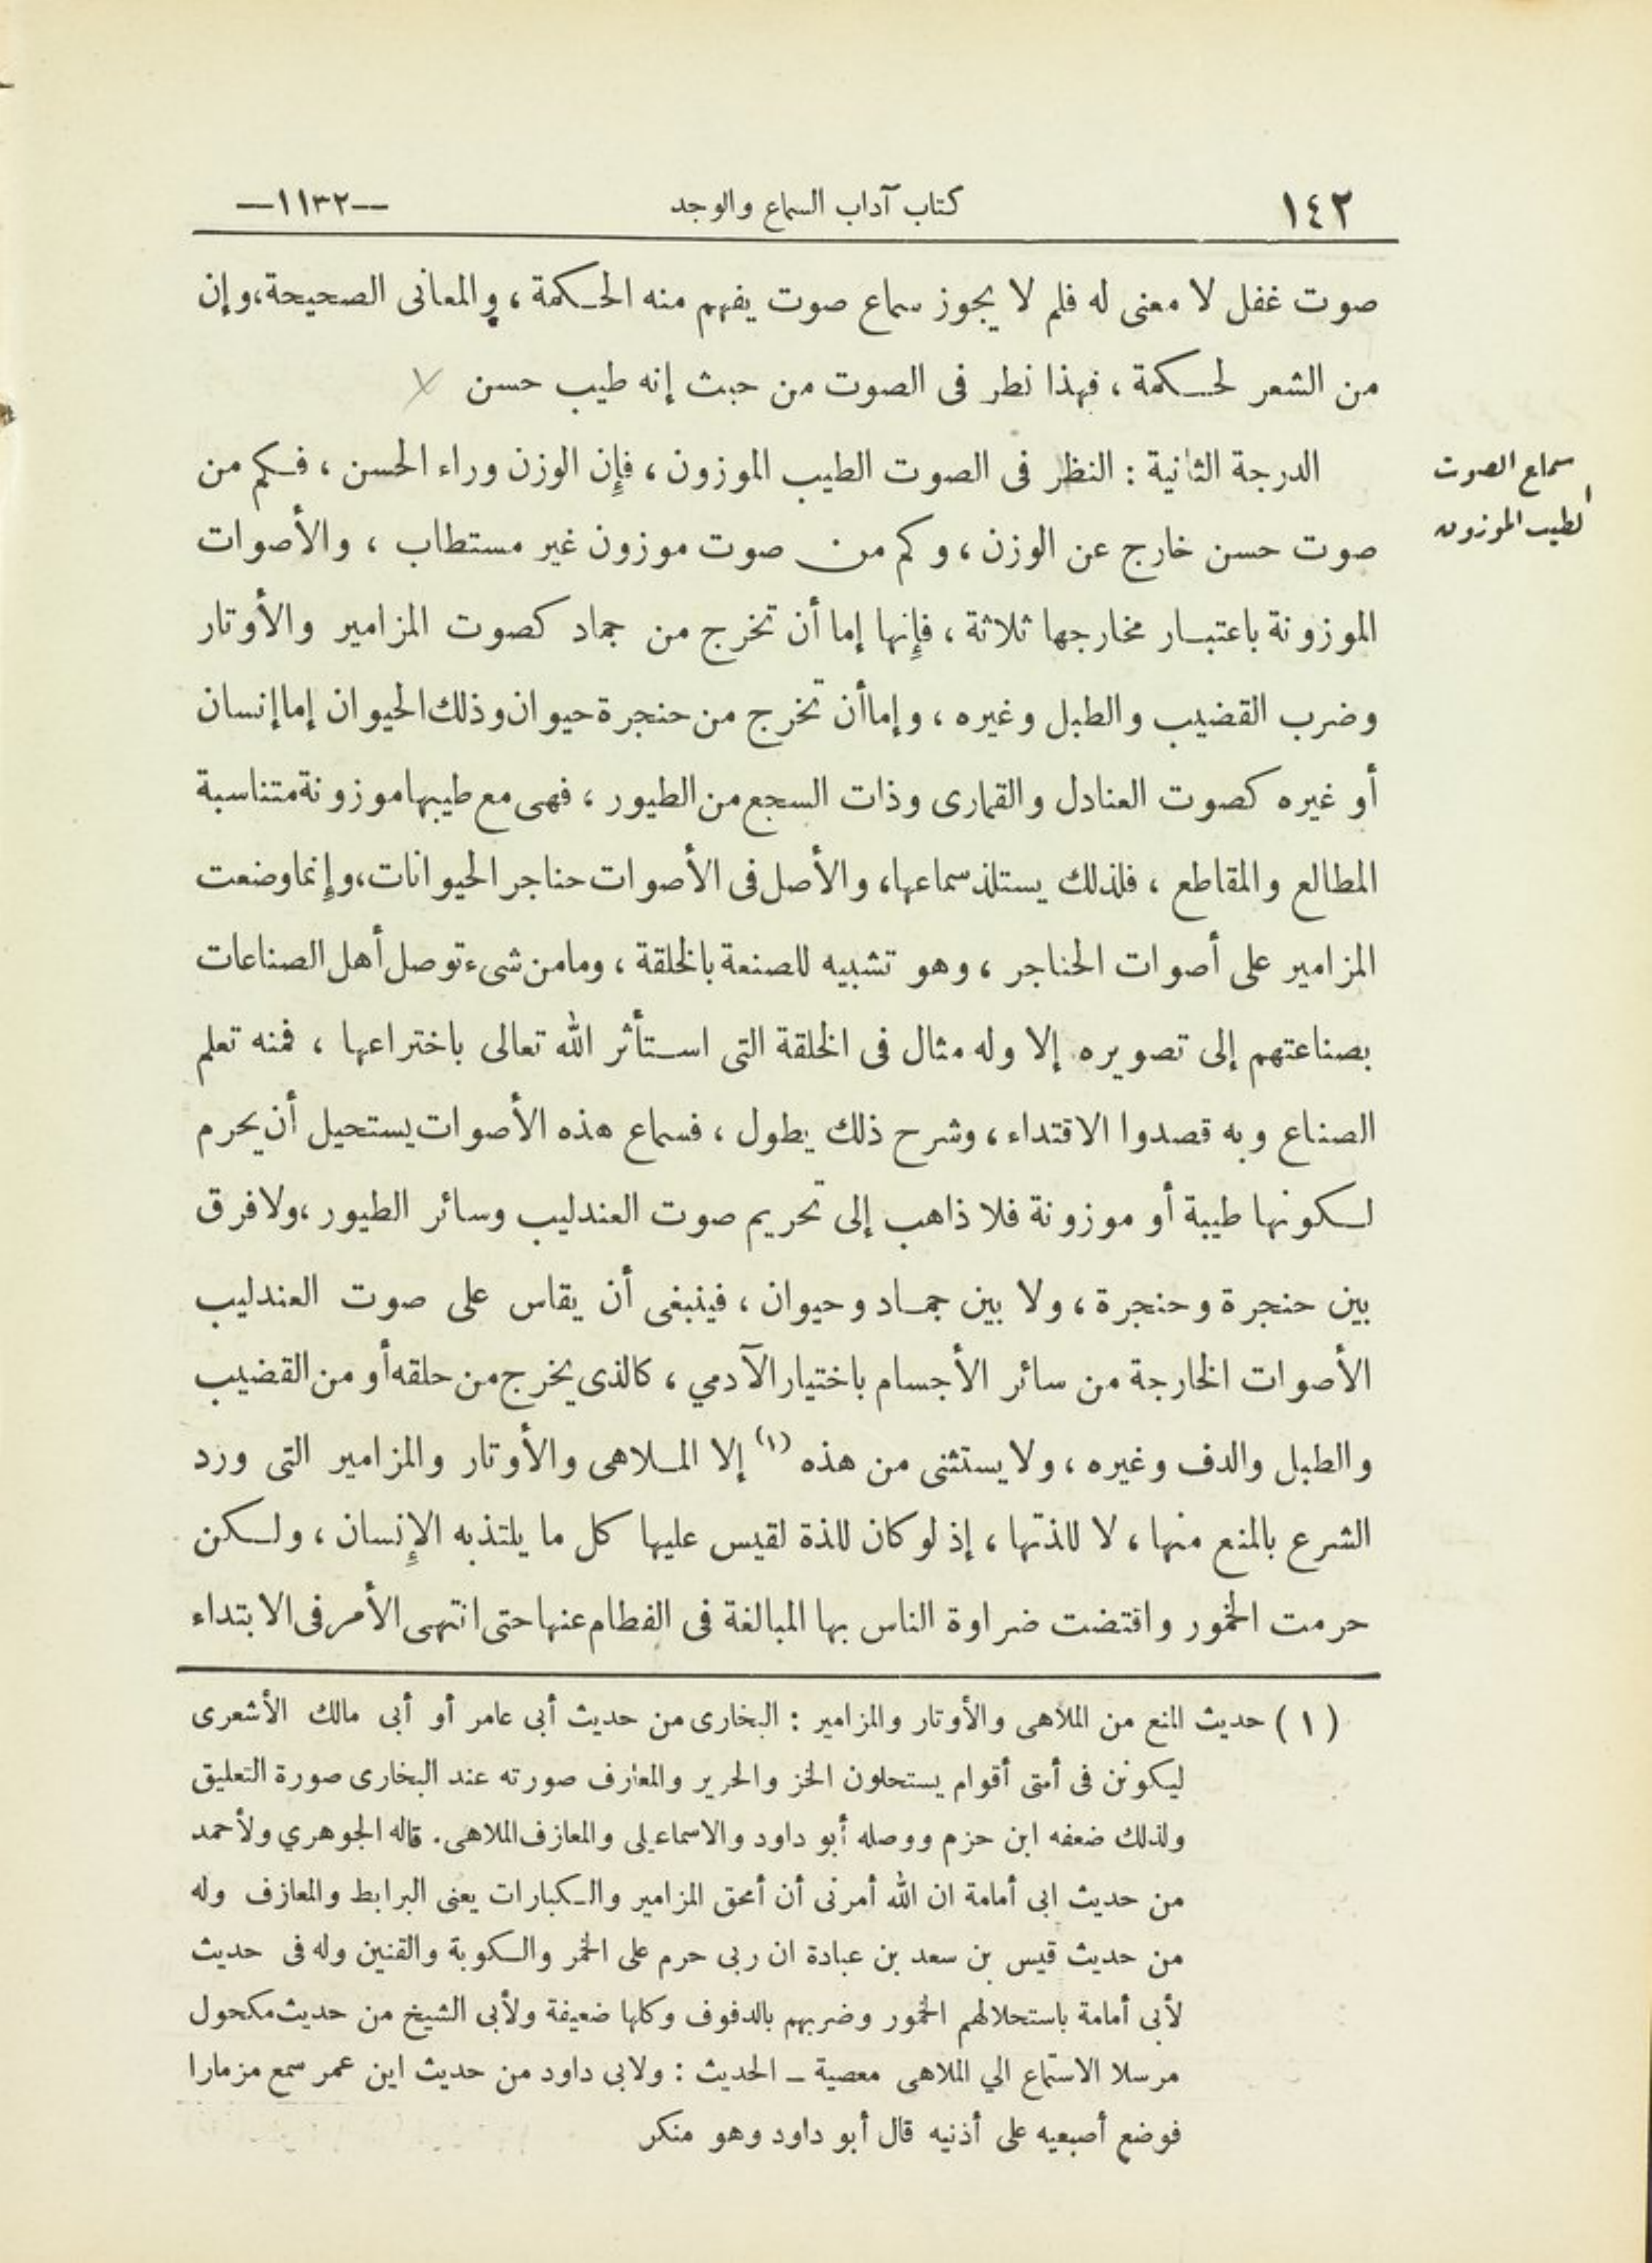 ١٤٢
كتاب آداب السماع والوجد
—١١٣٢—
صوت غفل لا معنى له فلم لا يجوز سماع صوت يفهم منه الحكمة ، والمعانى الصحيحة، وإن
من الشعر لحكمة ، فهذا نطر فى الصوت من حبث إنه طيب حسن
سماع الصوت
الطيب الموزون
الدرجة الثانية : النظر فى الصوت الطيب الموزون ، فإن الوزن وراء الحسن ، فكم من
صوت حسن خارج عن الوزن ، وكم من صوت موزون غير مستطاب ، والأصوات
الموزونة باعتبار مخارجها ثلاثة ، فإنها إما أن تخرج من جماد كصوت المزامير والأوتار
وضرب القضيب والطبل وغيره ، وإما أن تخرج من حنجرة حيوان وذلك الحيوان إما إنسان
أو غيره كصوت العنادل والقمارى وذات السجع من الطيور ، فهى مع طيبها موزونة متناسبة
المطالع والمقاطع ، فلذلك يستلذ سماعها، والأصل فى الأصوات حناجر الحيوانات، وإنما وضعت
المزامير على أصوات الحناجر ، وهو تشبيه للصنعة بالخلقة ، وما من شىء توصل أهل الصناعات
بصناعتهم إلى تصويره إلا وله مثال فى الخلقة التى استأثر الله تعالى باختراعها ، فمنه تعلم
الصناع وبه قصدوا الاقتداء ، وشرح ذلك يطول ، فسماع هذه الأصوات يستحيل أن يحرم
لكونها طيبة أو موزونة فلا ذاهب إلى تحريم صوت العندليب وسائر الطيور ،ولا فرق
بين حنجرة وحنجرة ، ولا بين جماد وحيوان ، فينبغى أن يقاس على صوت العندليب
الأصوات الخارجة من سائر الأجسام باختيار الآدمي ، كالذى يخرج من حلقه أو من القضيب
والطبل والدف وغيره ، ولا يستثنى من هذه (١) إلا الملاهى والأوتار والمزامير التى ورد
الشرع بالمنع منها ، لا للذتها ، إذ لو كان للذة لقيس عليها كل ما يلتذ به الإنسان ، ولكن
حرمت الخمور واقتضت ضراوة الناس بها المبالغة فى الفطام عنها حتى انتهى الأمر فى الابتداء
( ١ ) حديث المنع من الملاهى والأوتار والمزامير : البخارى من حديث أبى عامر أو أبى مالك الأشعرى
ليكونن فى أمتى أقوام يستحلون الخز والحرير والمعازف صورته عند البخارى صورة التعليق
ولذلك ضعفه ابن حزم ووصله أبو داود والاسماعيلى والمعازف الملاهى. قاله الجوهري ولأحمد
من حديث ابى أمامة ان الله أمرنى أن أمحق المزامير والكبارات يعنى البرابط والمعازف وله
من حديث قيس بن سعد بن عبادة ان ربى حرم على الخمر والكوبة والقنين وله فى حديث
لأبى أمامة باستحلالهم الخمور وضربهم بالدفوف وكلها ضعيفة ولأبى الشيخ من حديث مكحول
مرسلا الاستماع الي الملاهى معصية ــ الحديث : ولابى داود من حديث ابن عمر سمع مزمارا
فوضع أصبعيه على أذنيه قال أبو داود وهو منكر